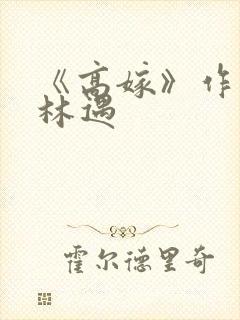 《高嫁》作
林遇
霍尔德里奇